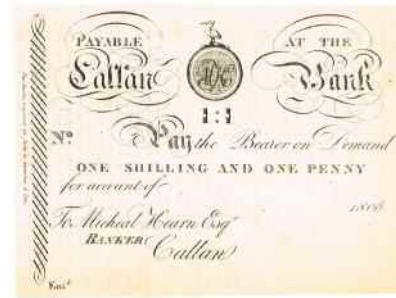 PAYABLE AT THE
Callan Bank
1:1
No Pay the Bearer on Demand
ONE SHILLING AND ONE PENNY
for account of
1808
To Micheal Hearn Esqr
BANKER
Callan
Entd